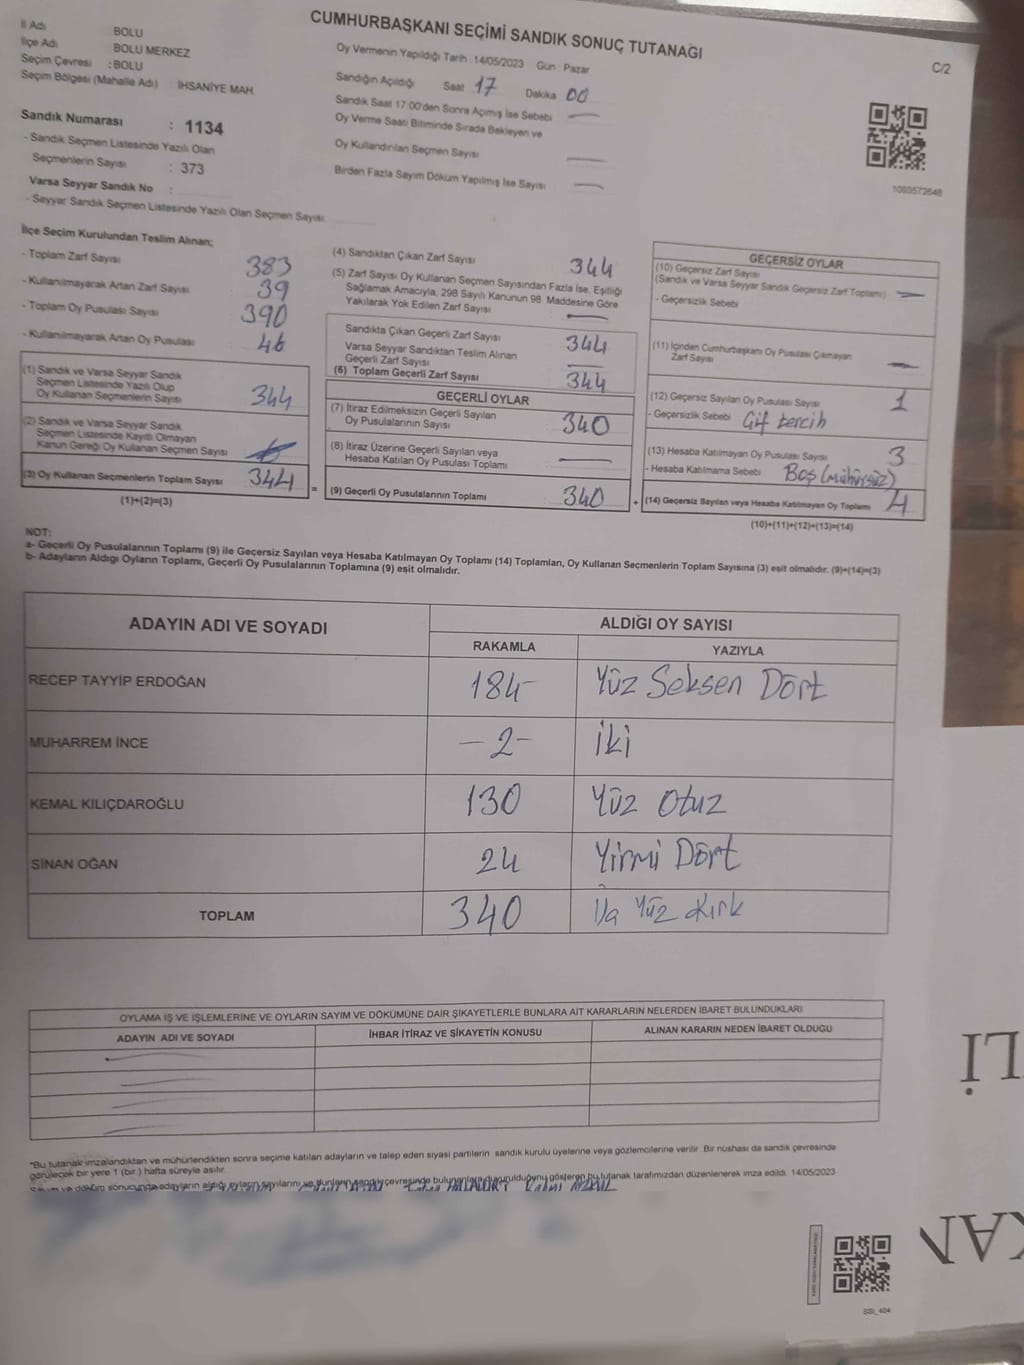 CUMHURBAŞKANI SEÇİMİ SANDIK SONUÇ TUTANAĞI
C/2
İl Adı BOLU
İlçe Adı BOLU MERKEZ
Seçim Çevresi : BOLU
Seçim Bölgesi (Mahalle Adı) İHSANİYE MAH.
Sandık Numarası : 1134
- Sandık Seçmen Listesinde Yazılı Olan
Seçmenlerin Sayısı : 373
Varsa Seyyar Sandık No :
- Seyyar Sandık Seçmen Listesinde Yazılı Olan Seçmen Sayısı
Oy Vermenin Yapıldığı Tarih : 14/05/2023 Gün : Pazar
Sandığın Açıldığı Saat 17 Dakika 00
Sandık Saat 17:00'den Sonra Açımış İse Sebebi
Oy Verme Saati Bitiminde Sırada Bekleyen ve
Oy Kullandırılan Seçmen Sayısı
Birden Fazla Sayım Döküm Yapılmış İse Sayısı
1093572648
İlçe Seçim Kurulundan Teslim Alınan;
- Toplam Zarf Sayısı 383
- Kullanılmayarak Artan Zarf Sayısı 39
- Toplam Oy Pusulası Sayısı 390
- Kullanılmayarak Artan Oy Pusulası 46
(1) Sandık ve Varsa Seyyar Sandık
Seçmen Listesinde Yazılı Olup
Oy Kullanan Seçmenlerin Sayısı 344
(2) Sandık ve Varsa Seyyar Sandık
Seçmen Listesinde Kayıtlı Olmayan
Kanun Gereği Oy Kullanan Seçmen Sayısı
(3) Oy Kullanan Seçmenlerin Toplam Sayısı 344
(1)+(2)=(3)
(4) Sandıktan Çıkan Zarf Sayısı 344
(5) Zarf Sayısı Oy Kullanan Seçmen Sayısından Fazla İse, Eşitliği
Sağlamak Amacıyla, 298 Sayılı Kanunun 98. Maddesine Göre
Yakılarak Yok Edilen Zarf Sayısı
Sandıkta Çıkan Geçerli Zarf Sayısı 344
Varsa Seyyar Sandıktan Teslim Alınan
Geçerli Zarf Sayısı
(6) Toplam Geçerli Zarf Sayısı 344
GEÇERLİ OYLAR
(7) İtiraz Edilmeksizin Geçerli Sayılan
Oy Pusulalarının Sayısı 340
(8) İtiraz Üzerine Geçerli Sayılan veya
Hesaba Katılan Oy Pusulası Toplamı
= (9) Geçerli Oy Pusulalarının Toplamı 340 +
GEÇERSİZ OYLAR
(10) Geçersiz Zarf Sayısı
(Sandık ve Varsa Seyyar Sandık Geçersiz Zarf Toplamı)
- Geçersizlik Sebebi
(11) İçinden Cumhurbaşkanı Oy Pusulası Çıkmayan
Zarf Sayısı
(12) Geçersiz Sayılan Oy Pusulası Sayısı 1
- Geçersizlik Sebebi Çift tercih
(13) Hesaba Katılmayan Oy Pusulası Sayısı 3
- Hesaba Katılmama Sebebi Boş (Mühürsüz)
(14) Geçersiz Sayılan veya Hesaba Katılmayan Oy Toplamı 4
(10)+(11)+(12)+(13)=(14)
NOT:
a- Geçerli Oy Pusulalarının Toplamı (9) ile Geçersiz Sayılan veya Hesaba Katılmayan Oy Toplamı (14) Toplamları, Oy Kullanan Seçmenlerin Toplam Sayısına (3) eşit olmalıdır. (9)+(14)=(3)
b- Adayların Aldığı Oyların Toplamı, Geçerli Oy Pusulalarının Toplamına (9) eşit olmalıdır.
ADAYIN ADI VE SOYADI ALDIĞI OY SAYISI
RAKAMLA YAZIYLA
RECEP TAYYİP ERDOĞAN 184 Yüz Seksen Dört
MUHARREM İNCE -2- İki
KEMAL KILIÇDAROĞLU 130 Yüz Otuz
SİNAN OĞAN 24 Yirmi Dört
TOPLAM 340 Yüz Kırk
OYLAMA İŞ VE İŞLEMLERİNE VE OYLARIN SAYIM VE DÖKÜMÜNE DAİR ŞİKAYETLERLE BUNLARA AİT KARARLARIN NELERDEN İBARET BULUNDUKLARI
ADAYIN ADI VE SOYADI İHBAR İTİRAZ VE ŞİKAYETİN KONUSU ALINAN KARARIN NEDEN İBARET OLDUĞU
*Bu tutanak imzalandıktan ve mühürlendikten sonra seçime katılan adayların ve talep eden siyasi partilerin sandık kurulu üyelerine veya gözlemcilerine verilir. Bir nüshası da sandık çevresinde
görülecek bir yere 1 (bir) hafta süreyle asılır.
Sayım ve döküm sonucunda adayların aldığı oyların sayılarını ve bunların sandık çevresinde bulunanlara duyurulduğunu gösteren bu tutanak tarafımızdan düzenlenerek imza edildi. 14/05/2023
SSİ_404
Lİ
KAN